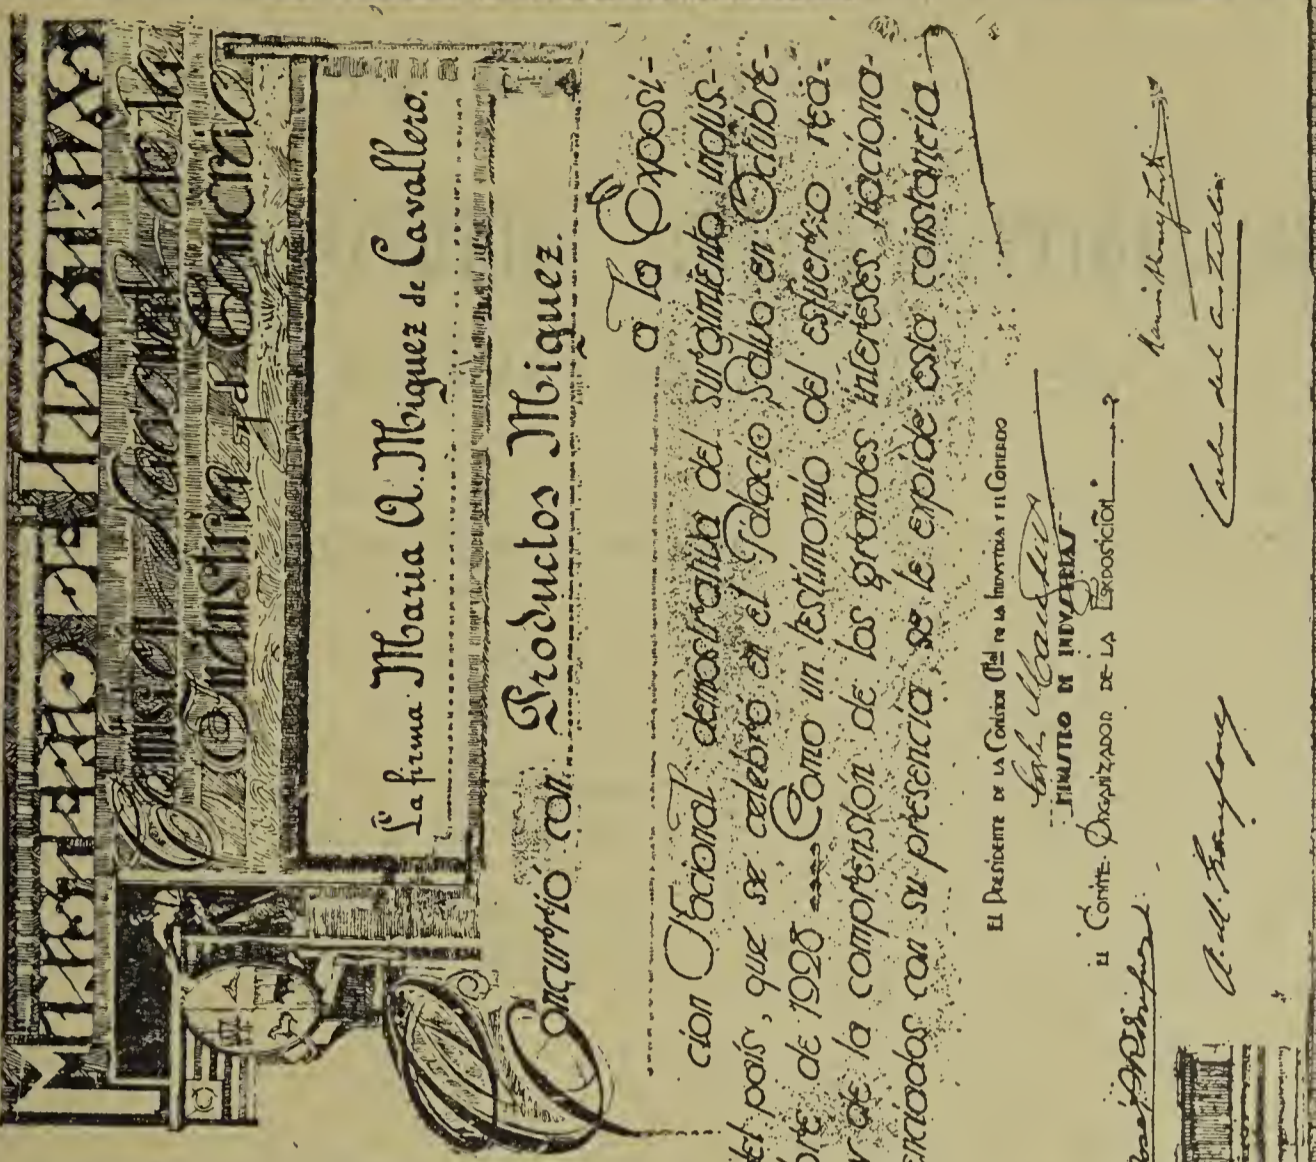 MINISTERIO DE INDVSTRIAS
Comision Nacional de la
Industria y el Comercio
La firma Maria A. Miguez de Cavallero.
Concurrió con: Productos Miguez.
a la Exposi-
ción Nacional demostrativa del surgimiento indus-
del país, que se celebró en el Palacio Salvo en Octubre-
de 1928 Como un testimonio del esfuerzo rea-
de la comprensión de los grandes intereses naciona-
enciados con su presencia, se le expide esta constancia
EL PRESIDENTE DE LA COMISION NAL DE LA INDVSTRIA Y EL COMERCIO
MINISTRO DE INDVSTRIAS
EL COMITE ORGANIZADOR DE LA EXPOSICION
Carlos del Castillo